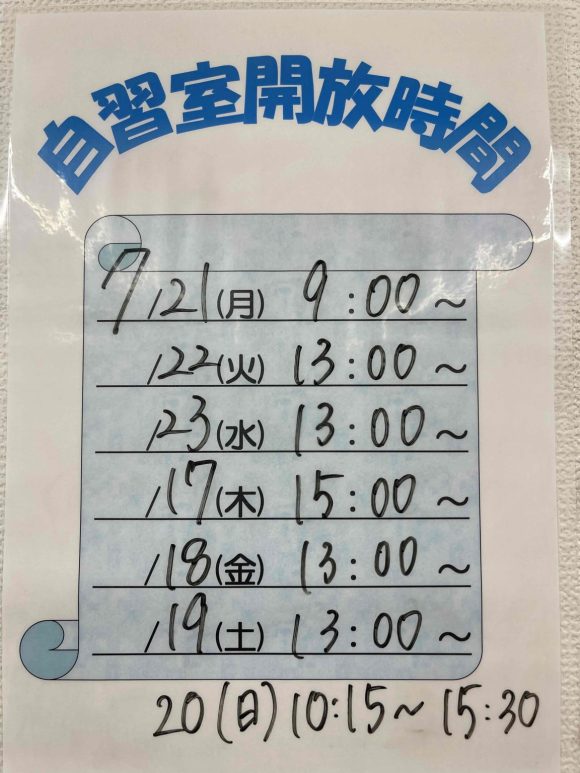 自習室開放時間
7/21(月) 9:00~
/22(火) 13:00~
/23(水) 13:00~
/17(木) 15:00~
/18(金) 13:00~
/19(土) 13:00~
20(日) 10:15~15:30